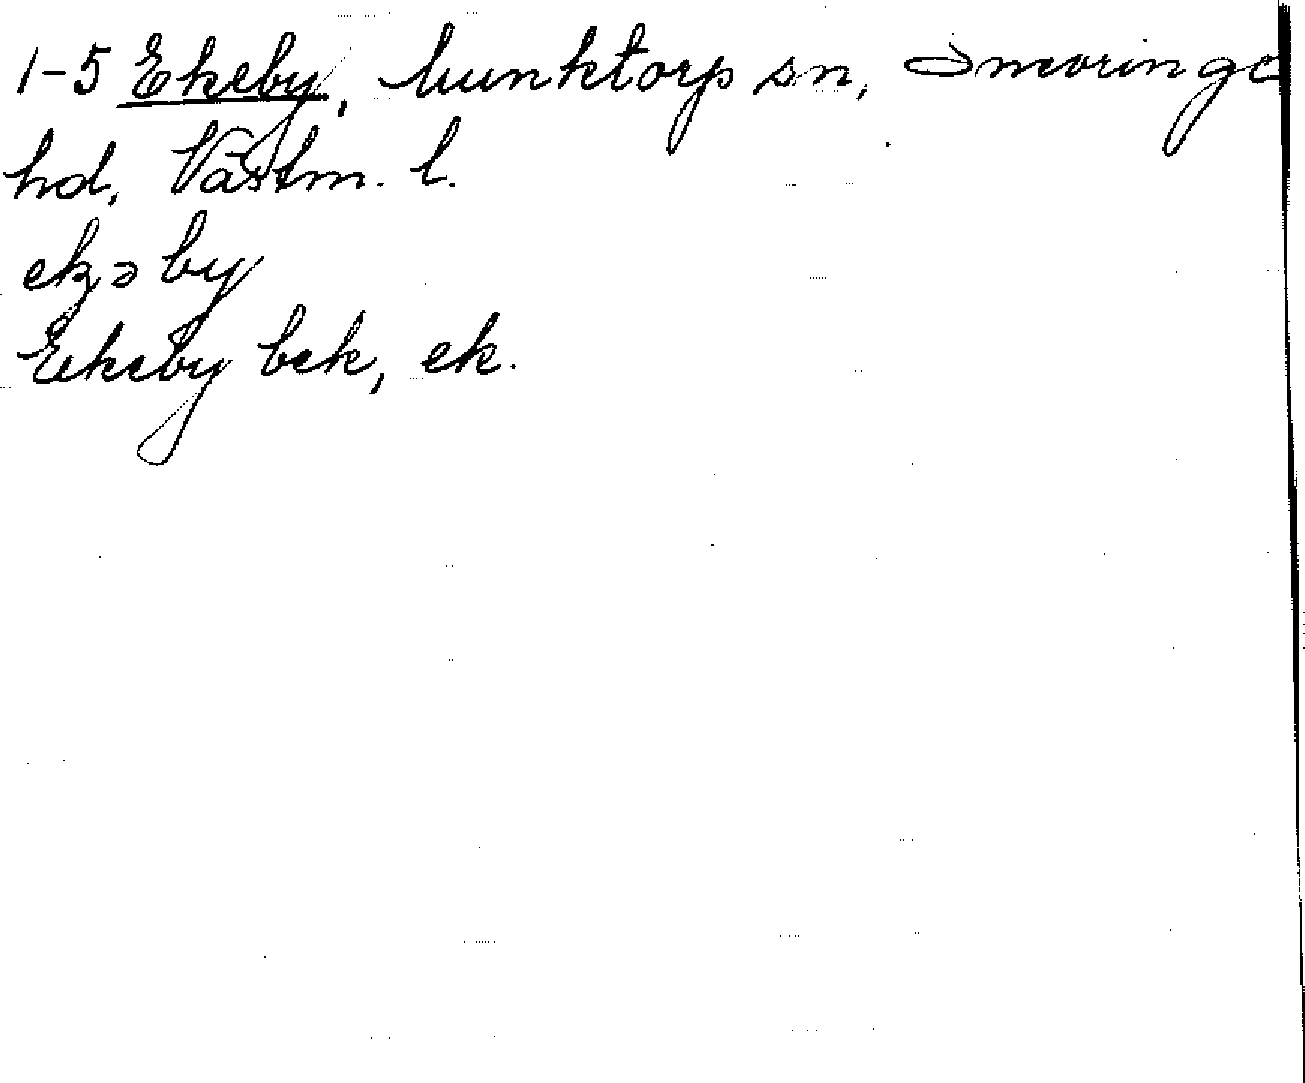 1-5 Ekeby, Munktorp sn, Snevringe
hd, Västm. l.
ekəby
Ekeby bek, ek.